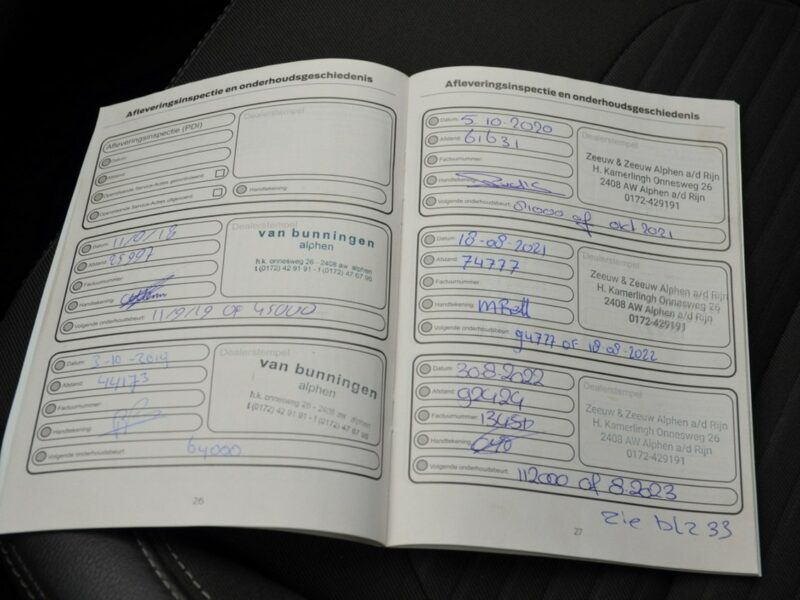 Afleveringsinspectie en onderhoudsgeschiedenis
Afleveringsinspectie (PDI)
Dealerstempel
Datum:
Afstand:
Openstaande Service-Acties gecontroleerd:
Openstaande Service-Acties uitgevoerd:
Handtekening:
Datum: 11/9/18
Dealerstempel
Afstand: 25997
van bunningen
alphen
Factuurnummer:
h.k. onnesweg 26 - 2408 aw alphen
t (0172) 42 91 91 - f (0172) 47 67 96
Handtekening:
Volgende onderhoudsbeurt: 11/9/19 OF 45000
Datum: 3-10-2019
Dealerstempel
Afstand: 44173
van bunningen
alphen
Factuurnummer:
h.k. onnesweg 26 - 2408 aw alphen
t (0172) 42 91 91 - f (0172) 47 67 96
Handtekening:
Volgende onderhoudsbeurt: 64000
26
Afleveringsinspectie en onderhoudsgeschiedenis
Datum: 5.10.2020
Dealerstempel
Afstand: 61631
Zeeuw & Zeeuw Alphen a/d Rijn
H. Kamerlingh Onnesweg 26
2408 AW Alphen a/d Rijn
0172-429191
Factuurnummer:
Handtekening:
Volgende onderhoudsbeurt: 81000 of okt 2021
Datum: 18-08-2021
Dealerstempel
Afstand: 74777
Zeeuw & Zeeuw Alphen a/d Rijn
H. Kamerlingh Onnesweg 26
2408 AW Alphen a/d Rijn
0172-429191
Factuurnummer:
Handtekening:
Volgende onderhoudsbeurt: 94777 OF 18-08-2022
Datum: 30.8.2022
Dealerstempel
Afstand: 92424
Zeeuw & Zeeuw Alphen a/d Rijn
H. Kamerlingh Onnesweg 26
2408 AW Alphen a/d Rijn
0172-429191
Factuurnummer:
Handtekening:
Volgende onderhoudsbeurt: 112000 of 8.2023
27
zie blz 33